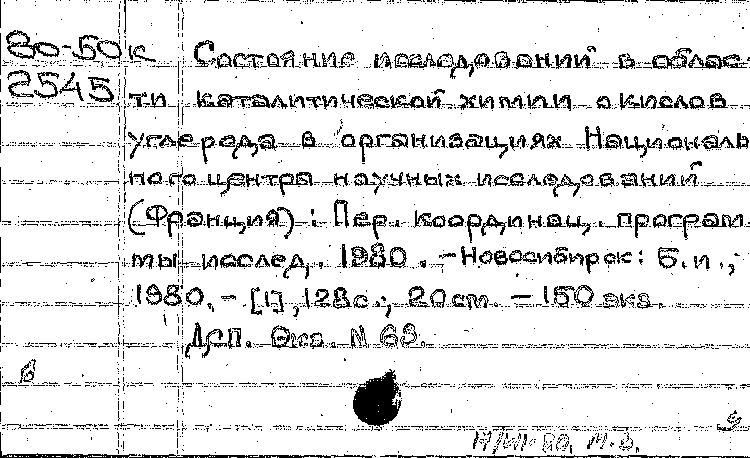 80-50к Состояние исследований в облас-
2545 ти каталитической химии окислов
углерода в организациях Националь
ного центра научных исследований
(Франция): Пер. координац. програм-
мы исслед. 1980. - Новосибирск: Б.и.,
1980. - [1], 128с.; 20 см. - 150 экз.
ДСП. Экз. N 63.
в